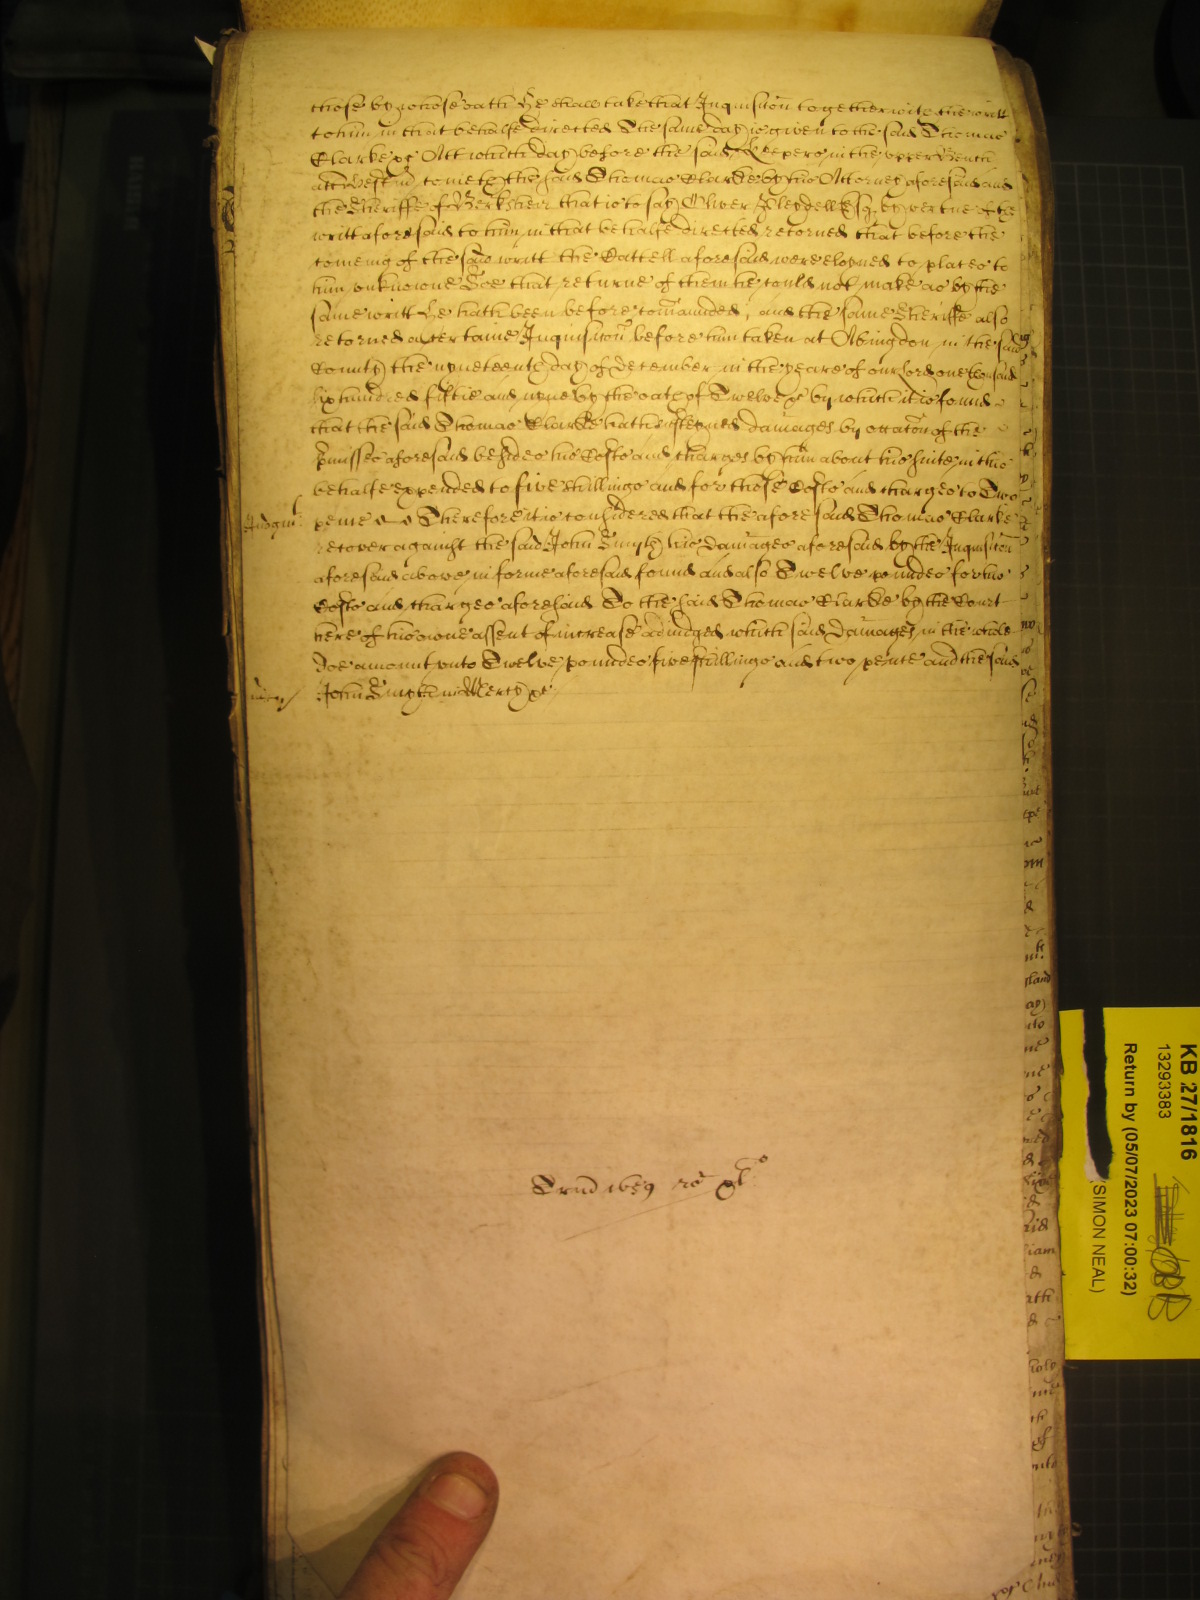 those by whose oath He shall take that Inquisicon together with the writt
to him in that behalfe directed The same day is given to the said Thomas
Clarke &c Att which day before the said Keepers in the upper Bench
att Westm cometh the said Thomas Clarke by his Attorney aforesaid and
the Sheriffe of Berksheir that is to say Oliver Pleydell Esq by vertue of the
writt aforesaid to him in that behalfe directed retorned that before the
comeing of the said writt the Cattell aforesaid were eloyned to places to
him unknowne Soe that returne of them he could not make as by the
same writt He hath been before comaunded, and the same Sheriffe also
retorned a certaine Inquisicon before him taken at Abingdon in the said
County the nyneteenth day of december in the yeare of our Lord one thousand
six hundred fiftie and nyne by the oath of Twelve &c by which it is found
that the said Thomas Clarke hath susteyned damages by occacon of the
pmisses aforesaid besides his Costs and charges by him about his suite in this
behalfe expended to five shillings and for those Costs and charges to Two
Judgmt pence Therefore it is considered that the aforesaid Thomas Clarke
recover against the said John Smyth his damages aforesaid by the Inquisicon
aforesaid above in forme aforesaid found and also Twelve poundes for his
Costs and charges aforesaid To the said Thomas Clarke by the Court
here of his owne assent of increase adiudged which said damages in the whole
doe amount unto Twelve poundes five shillings and two pence and the said
mercy John Smyth in Mercy &c
Trin 1659 ro
KB 27/1816
13293383
Return by (05/07/2023 07:00:32)
(SIMON NEAL)